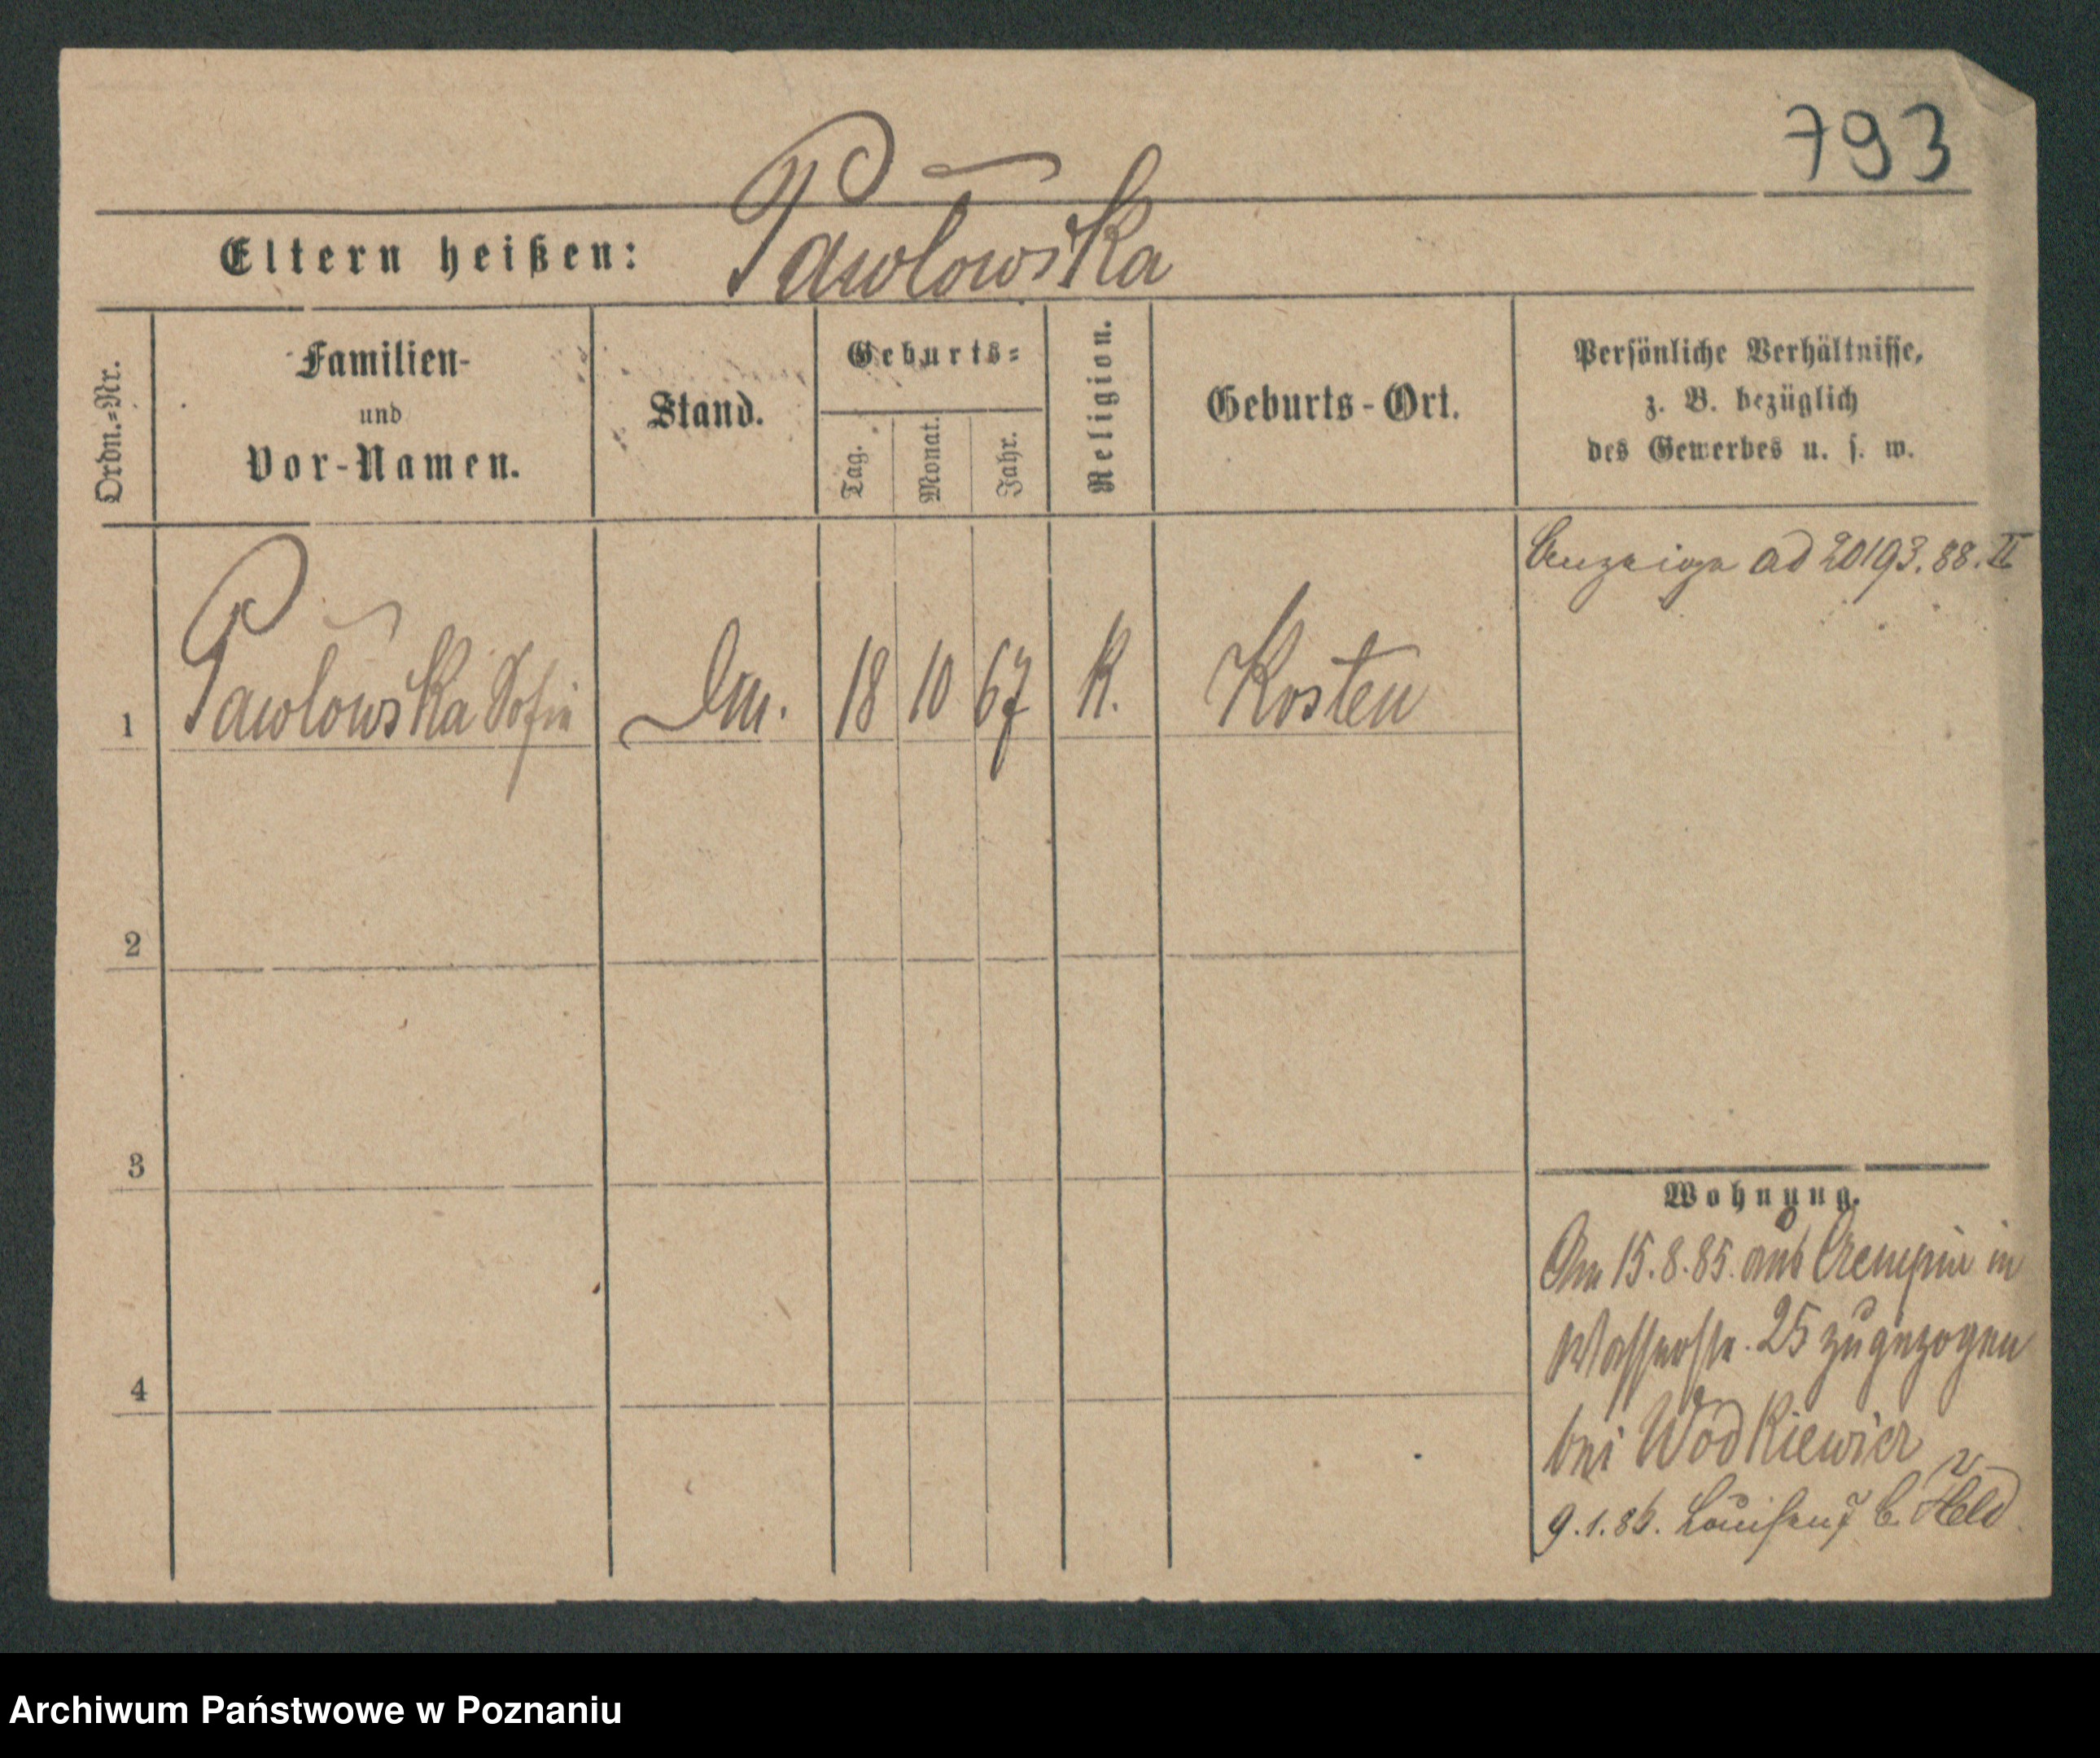 793
Eltern heißen: Pawłowska
Ordn.=Nr.
Familien-
und
Vor-Namen.
Stand.
Geburts=
Tag.
Monat.
Jahr.
Religion.
Geburts-Ort.
Persönliche Verhältnisse,
z. B. bezüglich
des Gewerbes u. s. w.
Anzeige ad 20193.88.II
1 Pawłowska Sofie 18 10 67 K. Kosten
2
3
4
Wohnung.
Am 15.8.85. aus Czempin in
Wasserstr. 25 zugezogen
bei Wodkiewicz
9.1.86. Louisen 7 b. Held
Archiwum Państwowe w Poznaniu